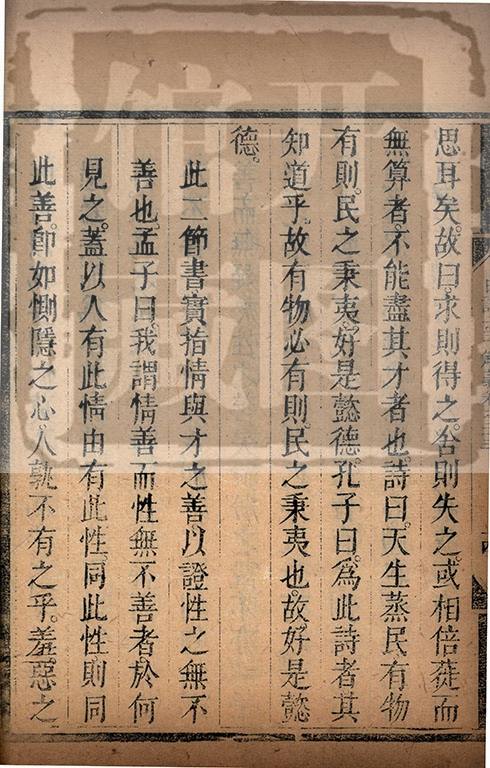 思耳矣故曰求則得之舍則失之或相倍蓰而
無算者不能盡其才者也詩曰天生蒸民有物
有則民之秉夷好是懿德孔子曰為此詩者其
知道乎故有物必有則民之秉夷也故好是懿
德
此二節書實指情與才之善以證性之無不
善也孟子曰我謂情善而性無不善者於何
見之蓋以人有此情由有此性同此性則同
此善即如惻隱之心人孰不有之乎羞惡之